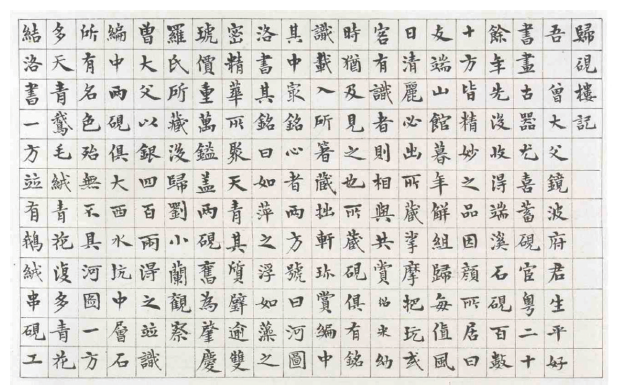 歸硯樓記
吾曾大父鏡波府君生平好
書畫古器尤喜蓄硯宦粵二十
餘年先沒收得端溪石硯百數
十方皆精妙之品因顏所居曰
友端山館暮年解組歸每值風
日清麗必出所藏挲摩把玩或
客有識者則相與共賞幼
時猶及見之也所藏硯俱有銘
識載入所著藏拙軒珎賞編中
其中家銘心者兩方號曰河圖
洛書其銘曰如萍之浮如藻之
密精華所聚天青其質璧逾雙
琥價重萬鎰蓋兩硯舊為肇慶
羅氏所藏沒歸劉小蘭觀察
曾大父以銀四百兩得之竝識
編中兩硯俱大西水坑中層石
所有名色殆無不具河圖一方
多天青鵞毛絨青花復多青花
結洛書一方竝有鵝絨串硯工